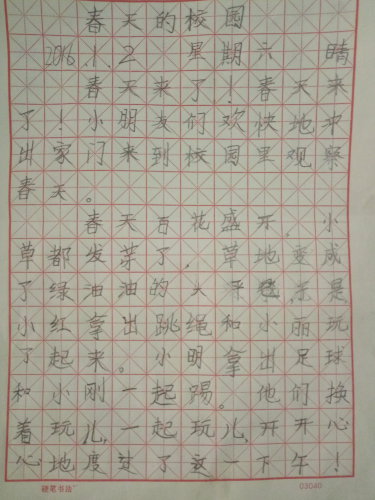 春天的校园
2016.1.2 星期六 晴
春天来了!春天来
了!小朋友们欢快地冲
出家门来到校园里观察
春天。
春天百花盛开,小
草都发芽了,草地变成
了绿油油的大手毯,于是
小红拿出跳绳和小丽玩
了起来。小明拿出足球
和小刚一起踢。他们换
着玩儿,一起玩儿,开开心
心地度过了这一下午!
硬笔书法
03040